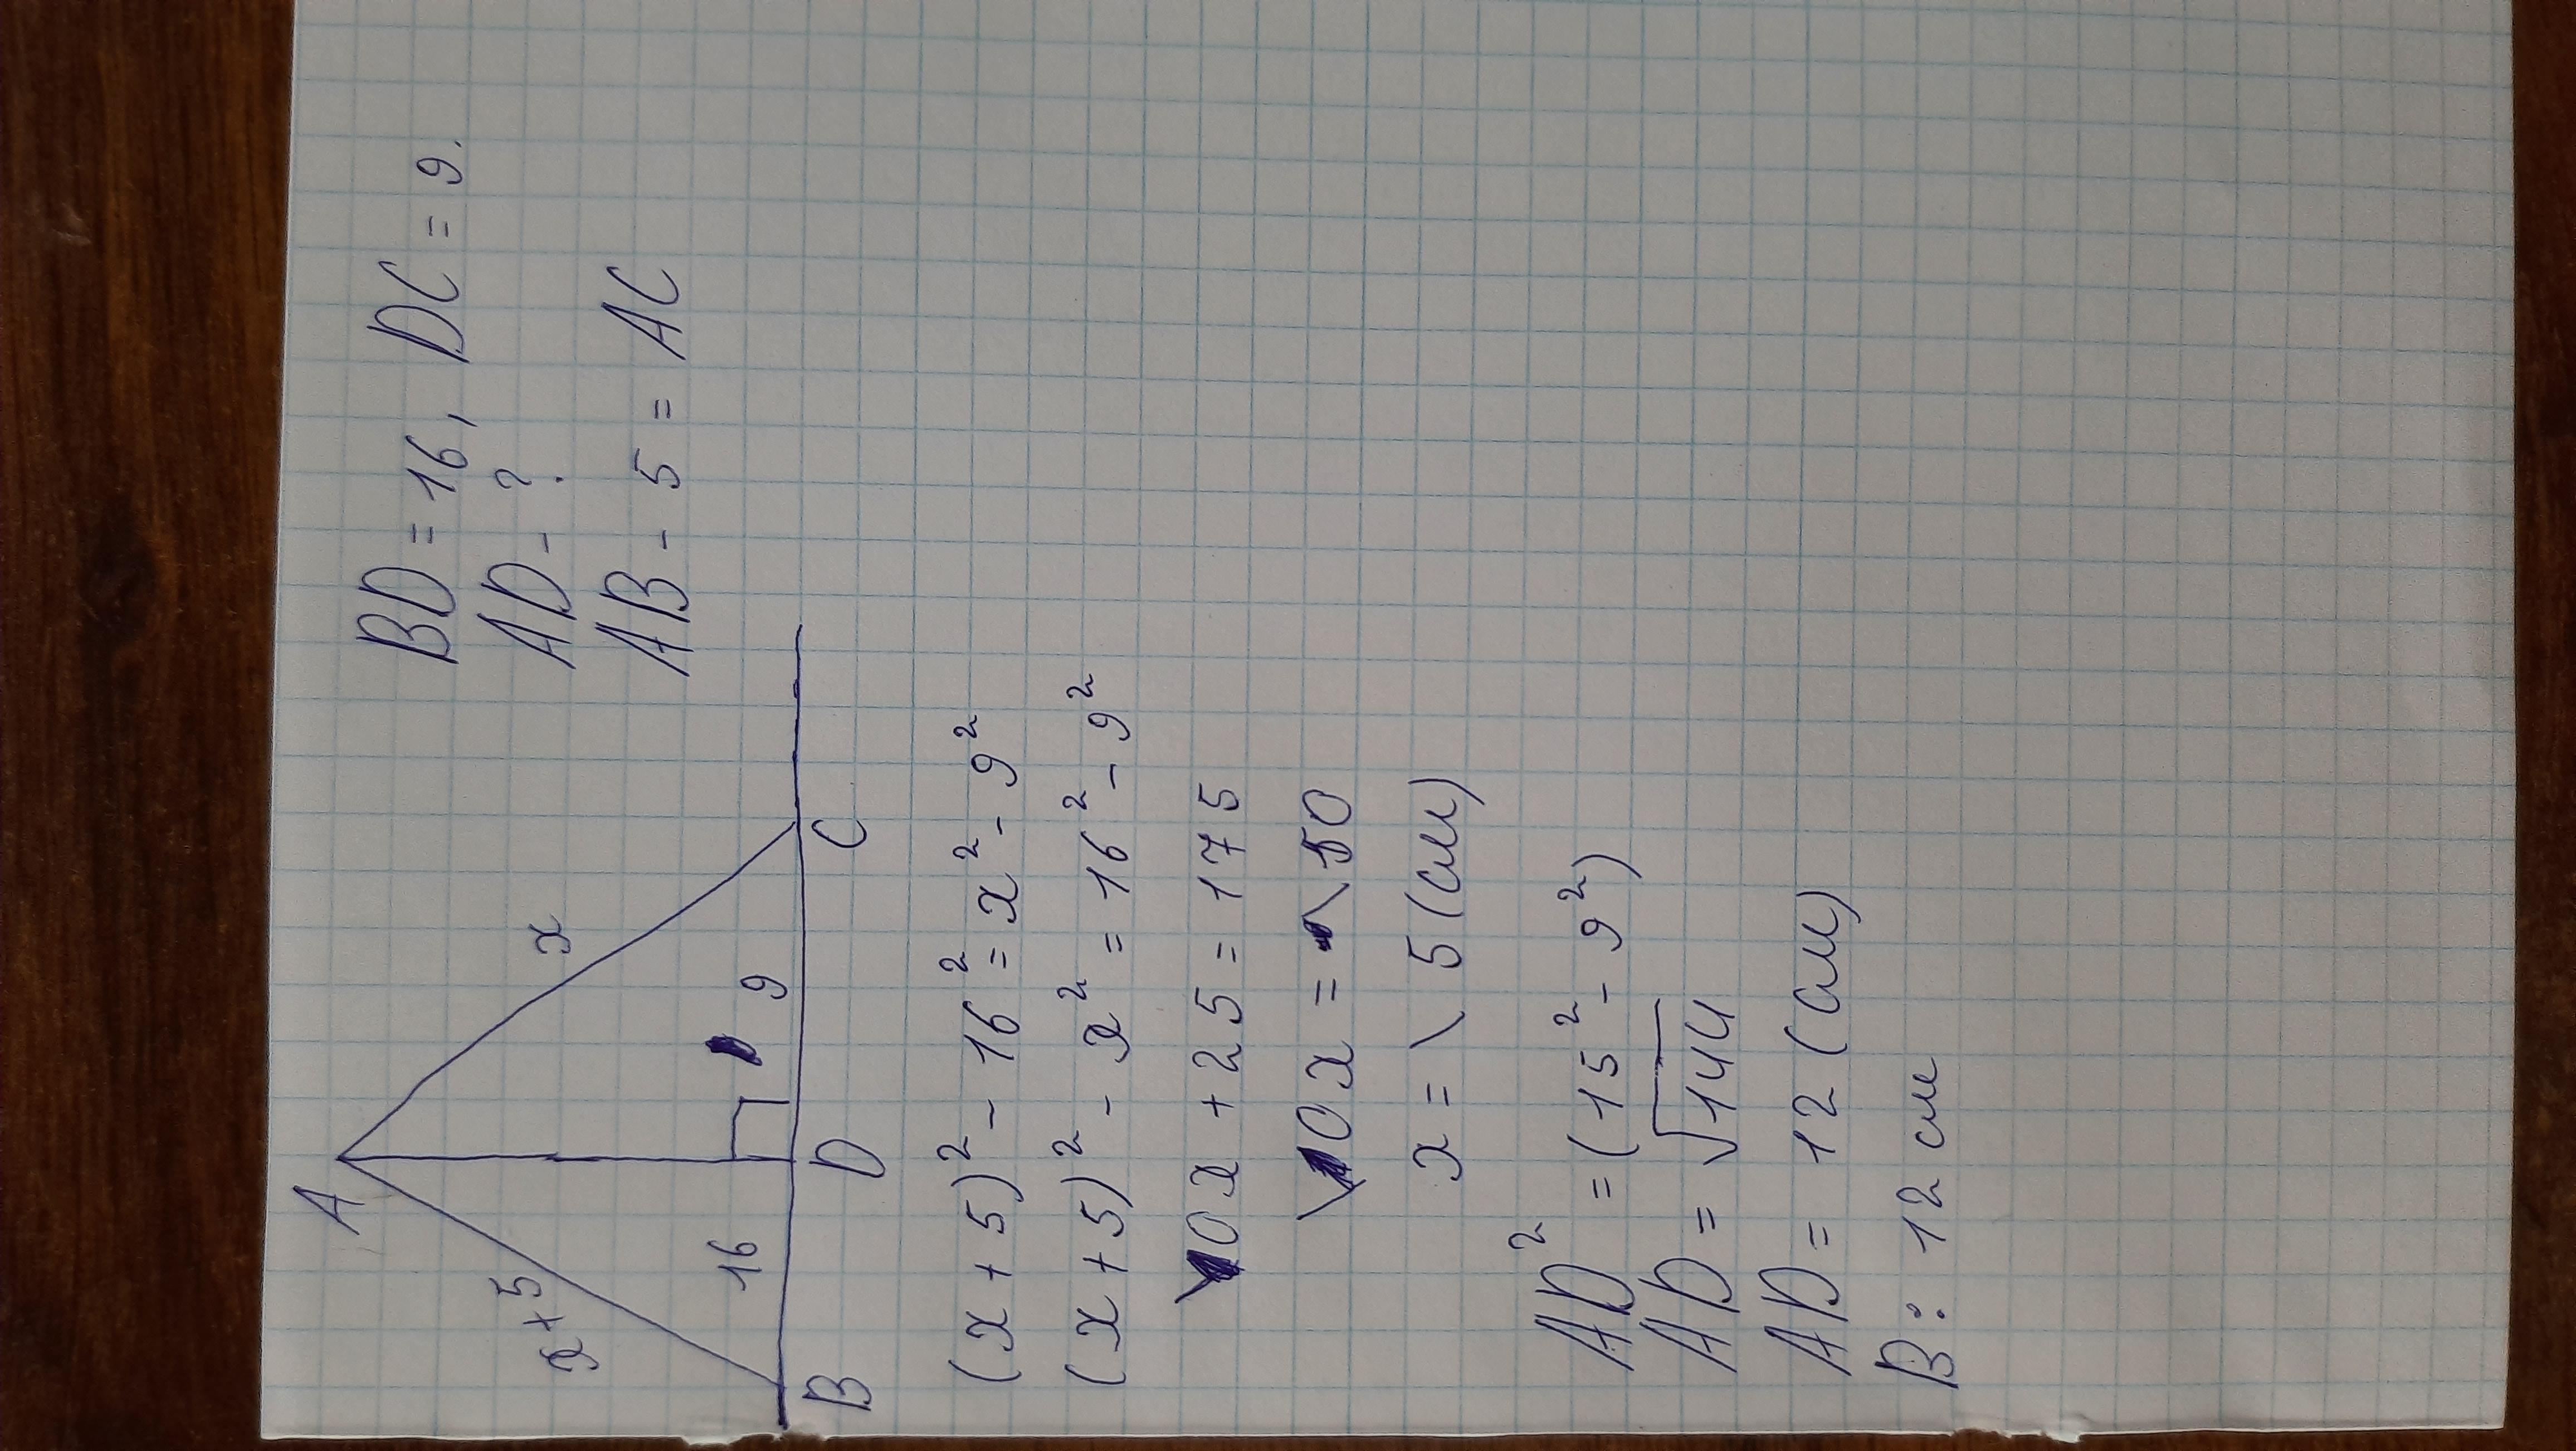 BD = 16, DC = 9.
AD - ?
AB - 5 = AC
A
x + 5
x
16
9
B
D
C
(x + 5)² - 16² = x² - 9²
(x + 5)² - x² = 16² - 9²
10x + 25 = 175
10x = 150
x = 15 (см)
AD² = (15² - 9²)
AD = √144
AD = 12 (см)
В: 12 см